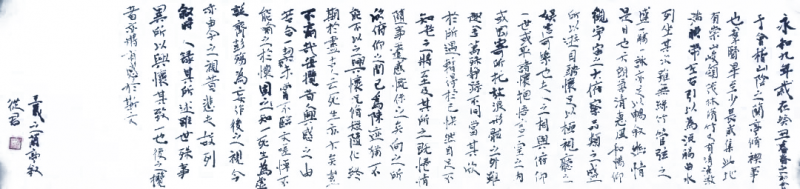 永和九年歲在癸丑暮春之初會
于會稽山陰之蘭亭脩禊事
也羣賢畢至少長咸集此地
有崇山峻領茂林脩竹又有清流激
湍暎帶左右引以為流觴曲水
列坐其次雖無絲竹管弦之
盛一觴一詠亦足以暢叙幽情
是日也天朗氣清惠風和暢仰
觀宇宙之大俯察品類之盛
所以遊目騁懷足以極視聽之
娛信可樂也夫人之相與俯仰
一世或取諸懷抱悟言一室之內
或因寄所託放浪形骸之外雖
趣舍萬殊靜躁不同當其欣
於所遇暫得於己快然自足不
知老之將至及其所之既惓情
隨事遷感慨係之矣向之所
欣俯仰之間已為陳迹猶不
能不以之興懷況脩短隨化終
期於盡古人云死生亦大矣豈
不痛哉每攬昔人興感之由
若合一契未嘗不臨文嗟悼不
能喻之於懷固知一死生為虛
誕齊彭殤為妄作後之視今
亦由今之視昔悲夫故列
叙時人錄其所述雖世殊事
異所以興懷其致一也後之攬
者亦將有感於斯文
王羲之蘭亭敘